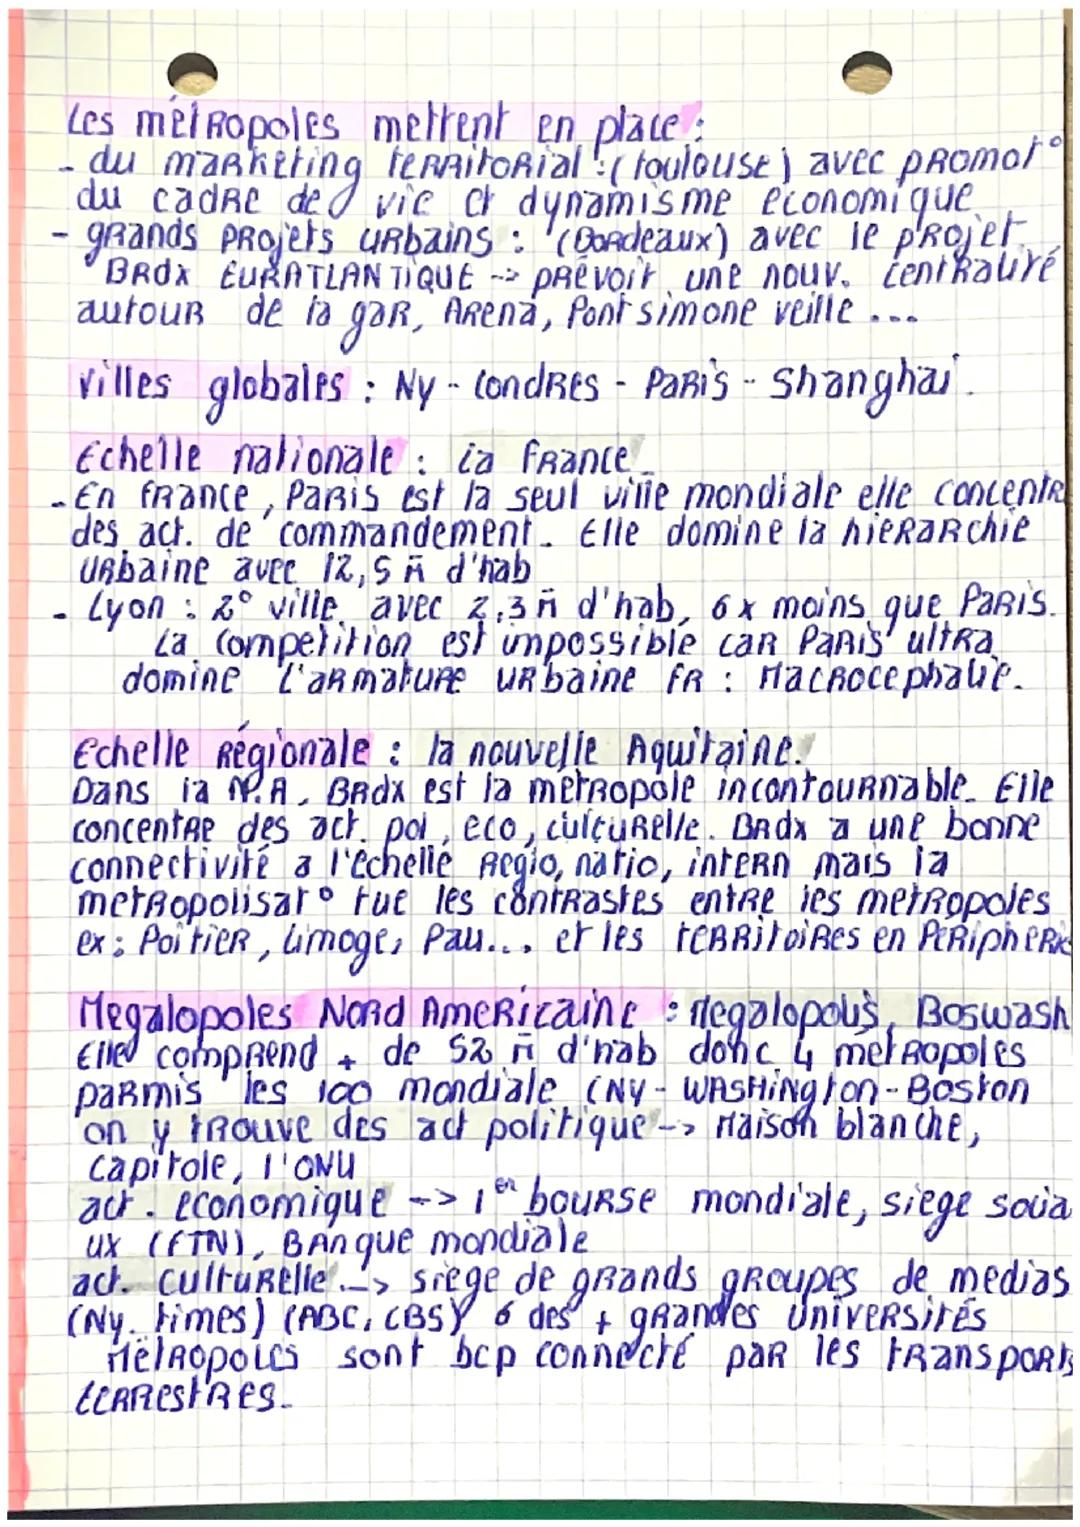 Les métropoles mettent en place :
- du marketing territorial : (toulouse) avec promot°
du cadre de vie et dynamisme economique
- grands projets urbains : (Bordeaux) avec le projet
BRDX EURATLANTIQUE --> prévoit une nouv. centralité
autour de la gar, Arena, Pont simone veille ...
villes globales : Ny - Londres - Paris - Shanghai.
Echelle nationale : la france
- En france, Paris est la seul ville mondiale elle concentre
des act. de commandement. Elle domine la hierarchie
urbaine avec 12,5 M d'hab
- Lyon : 2° ville avec 2,3 M d'hab, 6x moins que Paris.
La competition est impossible car Paris ultra
domine l'armature urbaine FR : Macrocephalie.
Echelle Régionale : la nouvelle Aquitaine.
Dans la N.A, Brdx est la métropole incontournable. Elle
concentre des act. pol, eco, culturelle. Brdx a une bonne
connectivité a l'échelle regio, natio, intern mais la
metropolisat° tue les contrastes entre les metropoles
ex : Poitier, Limoge, Pau... et les territoires en Peripherie
Megalopoles Nord Americaine : Megalopolis, Boswash
Elle comprend + de 52 M d'hab donc 4 metropoles
parmis les 100 mondiale (NY - Washington - Boston
on y trouve des act politique -> Maison blanche,
Capitole, l'ONU
act. economique --> 1er bourse mondiale, siege socia
ux (FTN), Banque mondiale
act. culturelle --> siege de grands groupes de medias
(Ny. times) (ABC, CBS) 6 des + grandes Universités
Métropoles sont bcp connecté par les transports
terrestres.